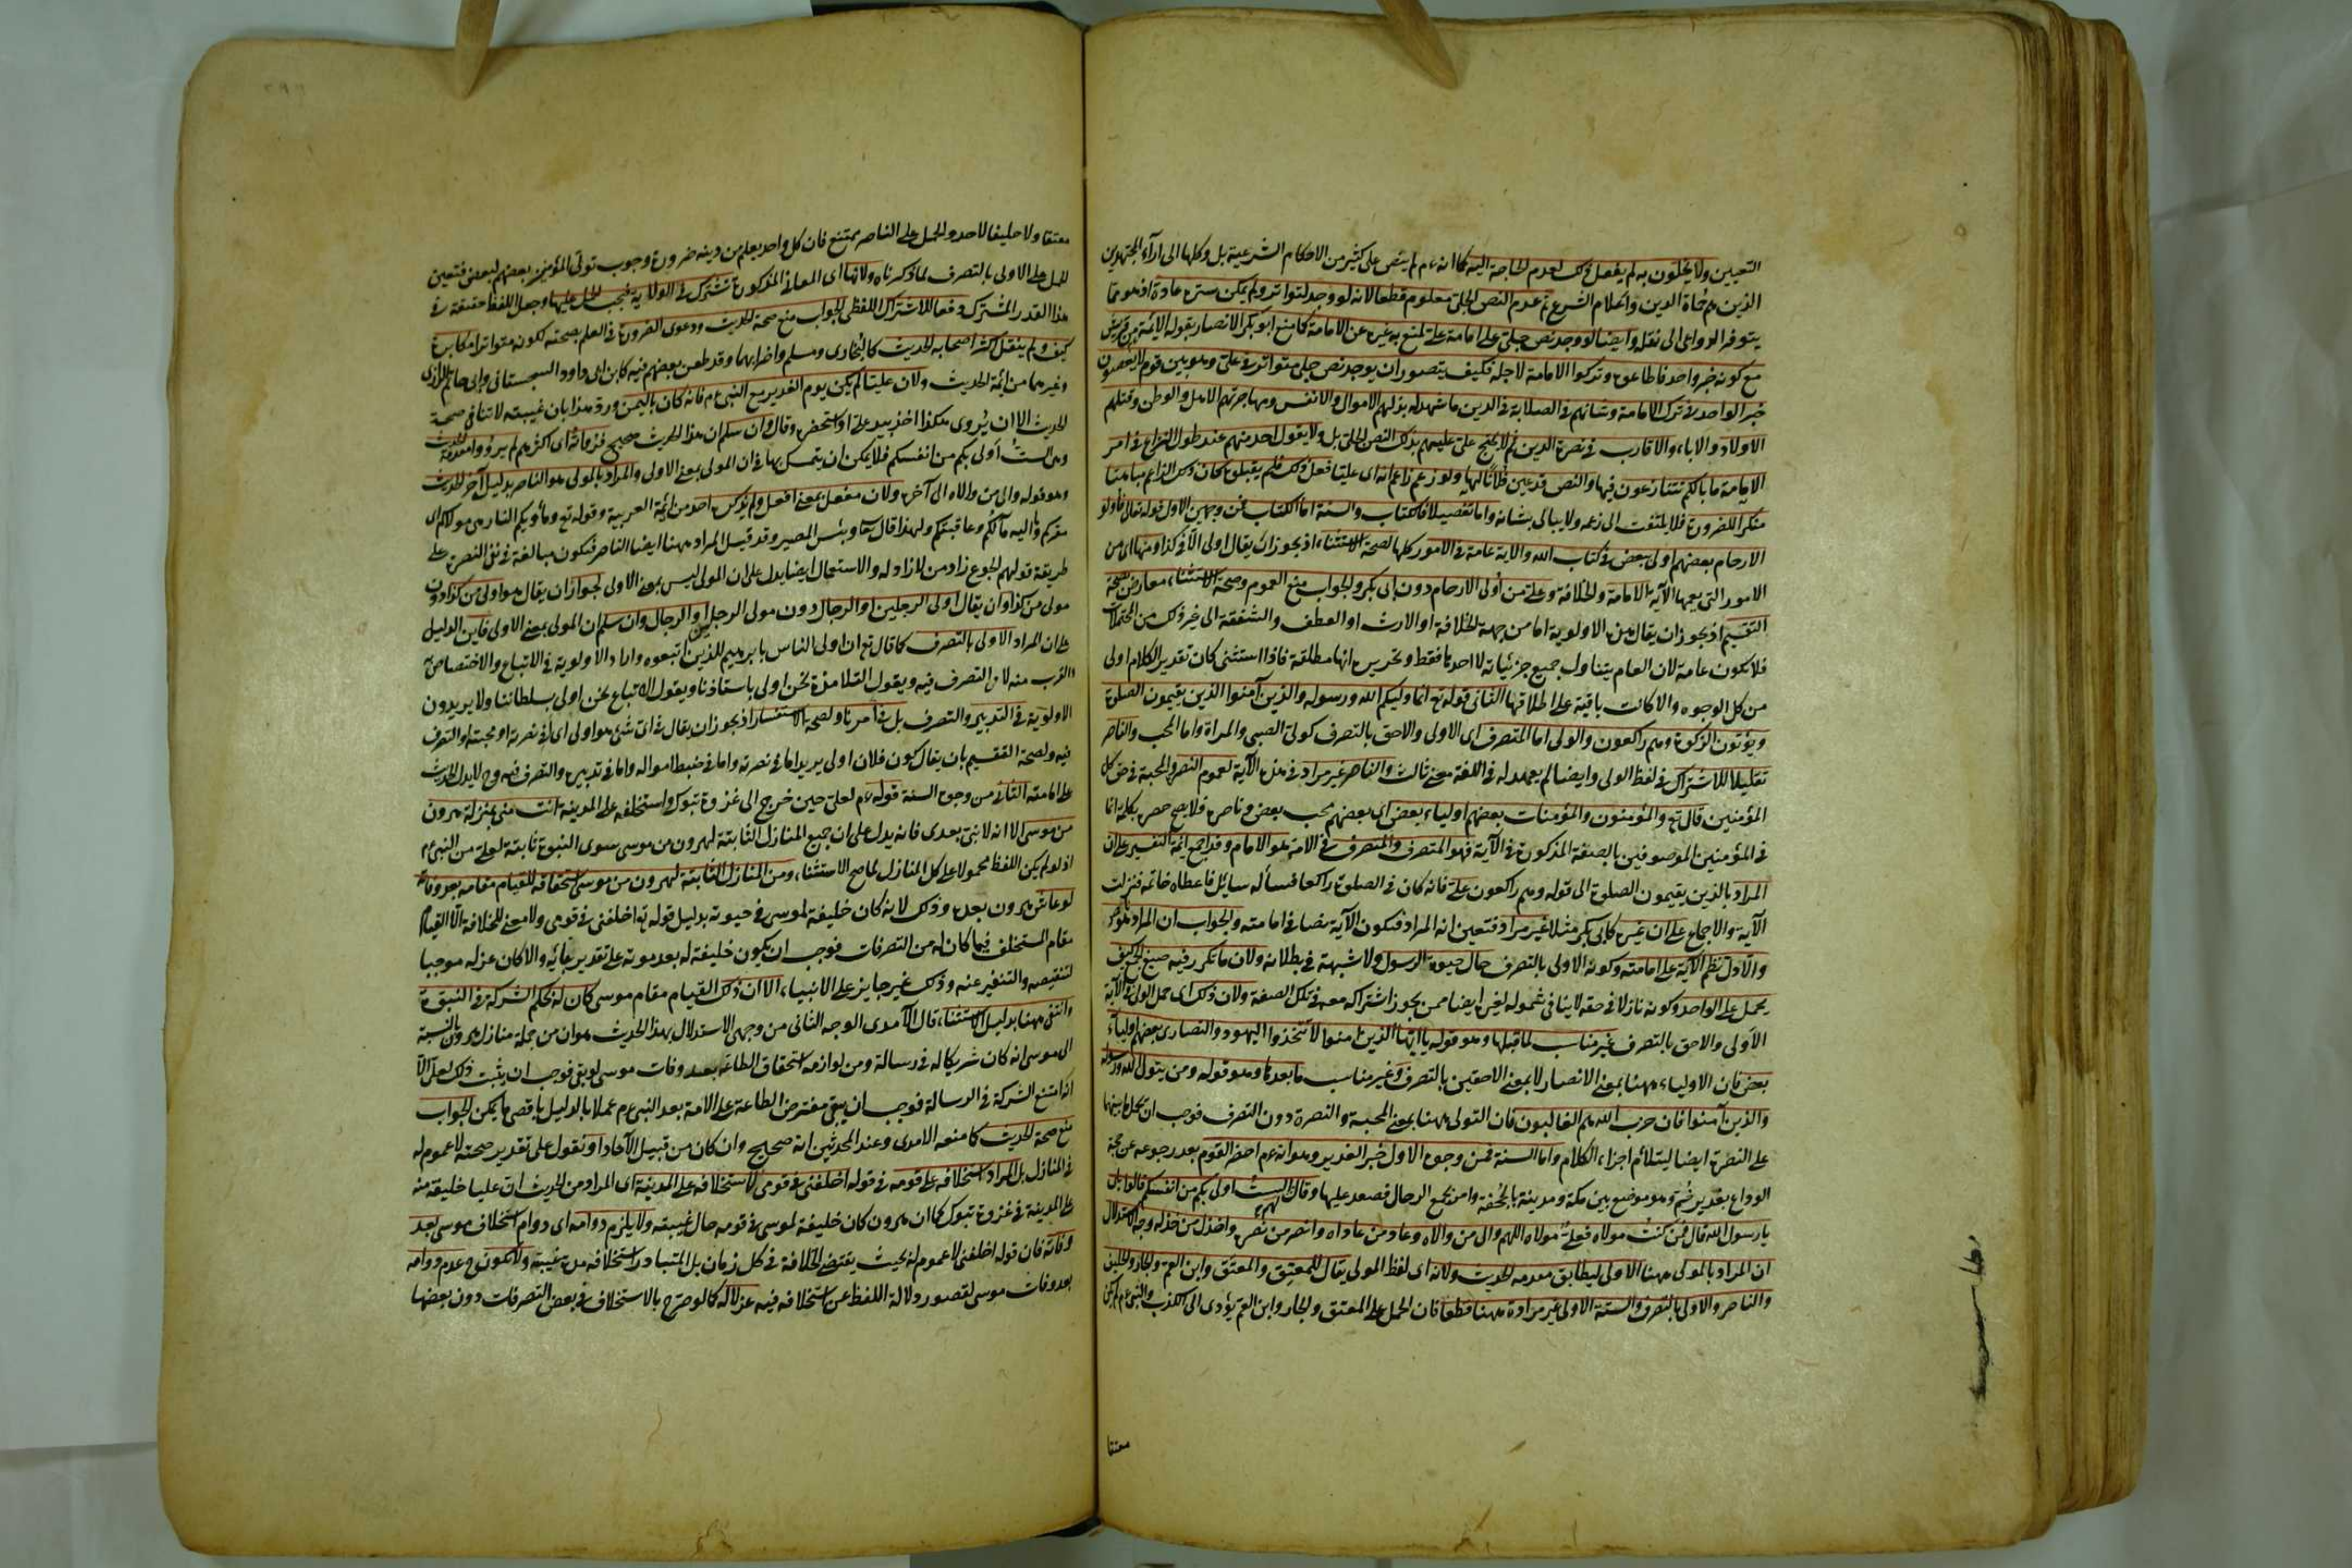 التعيين ولا يخلون به لم يفعل ذلك لعدم الحاجة اليه كما انه ءم لم ينص على كثير من الاحكام الشرعية بل وكلها الى اراء المجتهدين
الذين هم حماة الدين واعلام الشرع ثم عدم النص الجلى معلوم قطعا لانه لو وجد لتواتر ولم يمكن ستره عادة اذ هو مما
يتوفر الدواعى الى نقله وايضا لو وجد نص جلى على امامة على لمنع به غيره عن الامامة كما منع ابو بكر الانصار بقوله الائمة من قريش
مع كونه خبر واحد فاطاعوه وتركوا الامامة لاجله فكيف يتصور ان يوجد نص جلى متواتر فى على وهو بين قوم لا يعصون
خبر الواحد فى ترك الامامة وشانهم فى الصلابة فى الدين ما شهد له بذلهم الاموال والانفس ومهاجرتهم الاهل والوطن وقتلهم
الاولاد والاباء والاقارب فى نصرة الدين ثم لا يحتج على عليهم بذلك النص الجلى بل ولا يقول احد منهم عند طول النزاع فى امر
الامامة ما بالكم تتنازعون فيها والنص قد عين فلانا لها ولو زعم زاعم انه اى عليا فعل ذلك فلم يقبلوه كان ذلك الزاعم مباهتا
منكرا للضرورة فلا يلتفت الى زعمه ولا يبالى بشانه واما تفصيلا فالكتاب والسنة اما الكتاب فمن وجهين الاول قوله تعالى واولو
الارحام بعضهم اولى ببعض فى كتاب الله والاية عامة فى الامور كلها لصحة الاستثناء اذ يجوز ان يقال اولى الا فى كذا ومنها اى من
الامور التى يعمها الآية الامامة والخلافة وعلى من أولى الارحام دون ابى بكر والجواب منع العموم وصحة الاستثناء معارض بصحة
التقسيم اذ يجوز ان يقال هذه الاولوية اما من جهة الخلافة او الارث او العطف والشفقة الى غير ذلك من المحتملات
فلا يكون عامة لان العام يتناول جميع جزئياته لا احدها فقط وتحريره انها مطلقة فاذا استثنى كان تقدير الكلام اولى
من كل الوجوه والا كانت باقية على اطلاقها الثانى قوله تع انما وليكم الله ورسوله والذين آمنوا الذين يقيمون الصلوة
ويؤتون الزكوة وهم راكعون والولى اما المتصرف اى الاولى والاحق بالتصرف كولى الصبى والمراة واما المحب والناصر
تقليلا للاشتراك فى لفظ الولى وايضا لم يعهد له فى اللغة معنى ثالث والناصر غير مراد فى هذه الآية لعموم النصرة والمحبة فى حق كل
المؤمنين قال تع والمؤمنون والمؤمنات بعضهم اولياء بعض اى بعضهم محب بعض وناصره فلا يصح حصره بكلمة انما
فى المؤمنين الموصوفين بالصفة المذكورة فى الآية فهو المتصرف والمتصرف فى الامة هو الامام وقد اجمع ائمة التفسير على ان
المراد بالذين يقيمون الصلوة الى قوله وهم راكعون على فانه كان فى الصلوة راكعا فسأله سايل فاعطاه خاتمه فنزلت
الآية والاجماع على ان غيره كابى بكر مثلا غير مراد فتعين انه المراد فتكون الآية نصا فى امامته والجواب ان المراد هو الناصر
والا دل نظم الآية على امامته وكونه الاولى بالتصرف حال حيوة الرسول ولا شبهة فى بطلانه ولان ما تكرر فيه صيغ الجمع كيف
يحمل على الواحد وكونه نازلا فى حقه لا ينافى شموله لغيره ايضا ممن يجوز اشتراكه معه فى تلك الصفة ولان ذلك اى حمل الولى فى الآية
الأولى والاحق بالتصرف غير مناسب لما قبلها وهو قوله يا ايها الذين امنوا لا تتخذوا اليهود والنصارى بعضهم اولياء
بعض فان الاولياء ههنا بمعنى الانصار لا بمعنى الاحقين بالتصرف وغير مناسب ما بعدها وهو قوله ومن يتول الله ورسوله
والذين آمنوا فان حزب الله هم الغالبون فان التولى ههنا بمعنى المحبة والنصرة دون التصرف فوجب ان يحمل ما بينهما
على النصرة ايضا ليتلائم اجزاء الكلام واما السنة فمن وجوه الاول خبر الغدير وهو انه ءم احضر القوم بعد رجوعه عن حجة
الوداع بغدير خم وهو موضع بين مكة ومدينة بالجحفة وامر بجمع الرحال فصعد عليها وقال لهم الست اولى بكم من انفسكم قالوا بلى
يا رسول الله قال فمن كنت مولاه فعلى مولاه اللهم والى من والاه وعاد من عاداه وانصر من نصره واخذل من خذله وجه الاستدلال
ان المراد بالمولى ههنا الاولى ليطابق مقدمه الحديث ولانه اى لفظ المولى يقال للمعتق والمعتق وابن العم والجار والحليف
والناصر والاولى بالتصرف والستة الاولى غير مرادة ههنا قطعا فان الحمل على المعتق والجار وابن العم يؤدى الى الكذب والنبى ءم لم يكن
معتقا
معتقا ولا حليفا لاحد والحمل على الناصر ممتنع فان كل واحد يعلم من دينه ضرورة وجوب تولى المؤمنين بعضهم لبعض فتعين
الحمل على الاولى بالتصرف لما ذكرناه ولانها اى المعانى المذكورة تشترك فى الولاية فيجب الحمل عليها وجعل اللفظ حقيقة فى
هذا القدر المشترك دفعا للاشتراك اللفظى الجواب منع صحة الحديث ودعوى الضرورة فى العلم بصحته لكونه متواترا مكابرة
كيف ولم ينقله اكثر اصحاب الحديث كالبخارى ومسلم واضرابهما وقد طعن بعضهم فيه كابن ابى داود السجستانى وابى حاتم الرازى
وغيرهما من ائمة الحديث ولان عليا لم يكن يوم الغدير مع النبى ءم فانه كان باليمن ورد هذا بان غيبته لا تنافى صحة
الحديث الا ان يروى هكذا اخذ بيد على او استحضره وقال وان سلم ان هذا الحديث صحيح فرواته اى اكثرهم لم يرووا مقدمة الحديث
وهى الست أولى بكم من انفسكم فلا يمكن ان يتمسك بها فى ان المولى بمعنى الاولى والمراد بالمولى هو الناصر بدليل آخر الحديث
وهو قوله والى من والاه الى آخره ولان مفعل بمعنى افعل ولم يذكره احد من ائمة العربية وقوله تع ومأويكم النار هى موليكم اى
مقركم وإليه مآلكم وعاقبتكم ولهذا قال تعا وبئس المصير وقد قيل المراد ههنا ايضا الناصر فتكون مبالغة فى نفى النصرة على
طريقة قولهم الجوع زاد من لا زاد له والاستعمال ايضا يدل على ان المولى ليس بمعنى الاولى لجواز ان يقال هو اولى من كذا دون
مولى من كذا وان يقال اولى الرجلين او الرجال دون مولى الرجلين او الرجال وان سلم ان المولى بمعنى الاولى فاين الدليل
على ان المراد الاولى بالتصرف كما قال تع ان اولى الناس بابرهيم للذين اتبعوه واراد الأولوية فى الاتباع والاختصاص به
القرب منه لا فى التصرف فيه ويقول التلامذة نحن اولى باستاذنا ويقول الاتباع نحن اولى بسلطاننا ولا يريدون
الاولوية فى التدبير والتصرف بل فى امر ما ولصحة الاستفسار اذ يجوز ان يقال فى اى شئ هو اولى أفى نصرته او محبته او التصرف
فيه ولصحة التقسيم بان يقال كون فلان اولى يريد اما فى نصرته واما فى ضبط امواله واما فى تدبيره والتصرف فيه وح لا يدل الحديث
على امامته الثانى من وجوه السنة قوله ءم لعلى حين خرج الى غزوة تبوك واستخلفه على المدينة انت منى بمنزلة هرون
من موسى الا انه لا نبى بعدى فانه يدل على ان جميع المنازل الثابتة لهرون من موسى سوى النبوة ثابتة لعلى من النبى ءم
اذ لو لم يكن اللفظ محمولا على كل المنازل لما صح الاستثناء ومن المنازل الثابتة لهرون من موسى استحقاقه للقيام مقامه بعد وفاته
لو عاش هرون بعده وذلك لانه كان خليفة لموسى فى حيوته بدليل قوله تع اخلفنى فى قومى ولا معنى للخلافة الا القيام
مقام المستخلف فيما كان له من التصرفات فوجب ان يكون خليفة له بعد موته على تقدير بقائه والا كان عزله موجبا
لتنقيصه والتنفير عنه وذلك غير جايز على الانبياء الا ان ذلك القيام مقام موسى كان له بحكم الشركة فى النبوة
وانتفى ههنا بدليل الاستثناء قال الآمدى الوجه الثانى من وجهى الاستدلال بهذا الحديث هو ان من جملة منازل هرون بالنسبة
الى موسى انه كان شريكا له فى رسالة ومن لوازمه استحقاق الطاعة بعد وفات موسى لو بقى فوجب ان يثبت ذلك لعلى الا
انه امتنع الشركة فى الرسالة فوجب ان يبقى مفترض الطاعة على الامة بعد النبى ءم عملا بالدليل باقصى ما يمكن الجواب
منع صحة الحديث كما منعه الامدى وعند المحدثين انه صحيح وان كان من قبيل الآحاد او نقول على تقدير صحته لا عموم له
فى المنازل بل المراد استخلافه على قومه فى قوله اخلفنى فى قومى لاستخلافه على المدينة اى المراد من الحديث ان عليا خليفة منه
على المدينة فى غزوة تبوك كما ان هرون كان خليفة لموسى فى قومه حال غيبته ولا يلزم دوامه اى دوام استخلاف موسى بعد
وفاته فان قوله اخلفنى لا عموم له بحيث يقتضى الخلافة فى كل زمان بل المتبادر استخلافه مدة غيبته ولا يكون ح عدم دوامه
بعد وفات موسى لقصور دلالة اللفظ عن استخلافه فيه عزلا له كما لو صرح بالاستخلاف فى بعض التصرفات دون بعضها